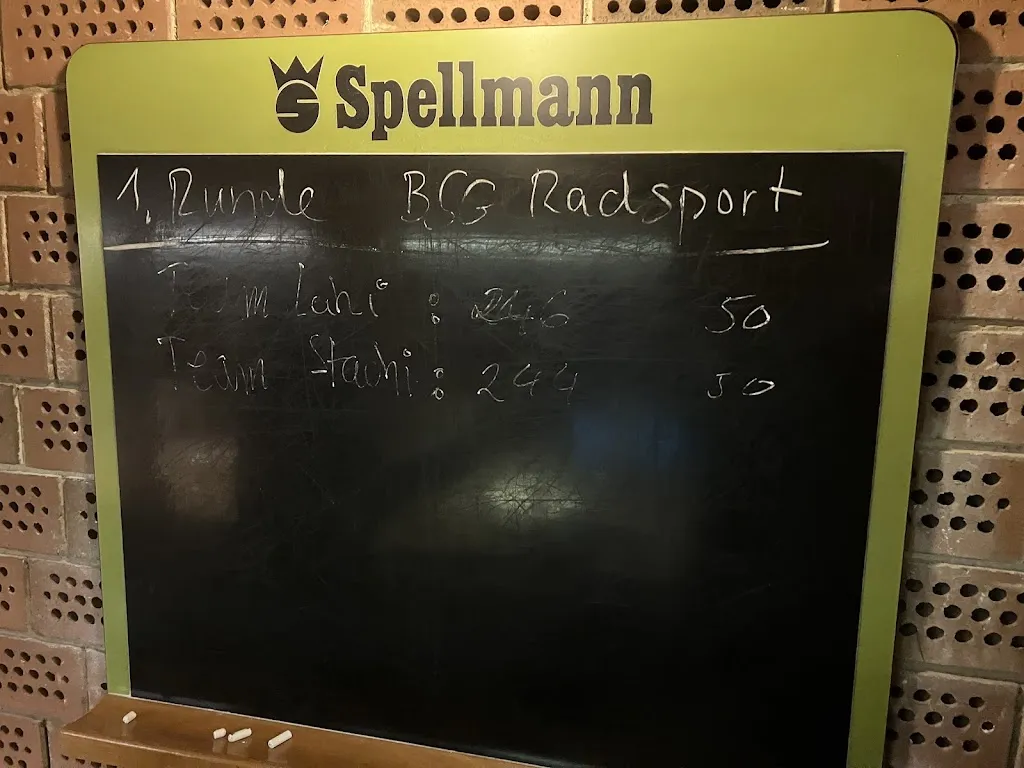 Spellmann
1. Runde BCG Radsport
Team Lahi : 246 50
Team Stachi : 244 50